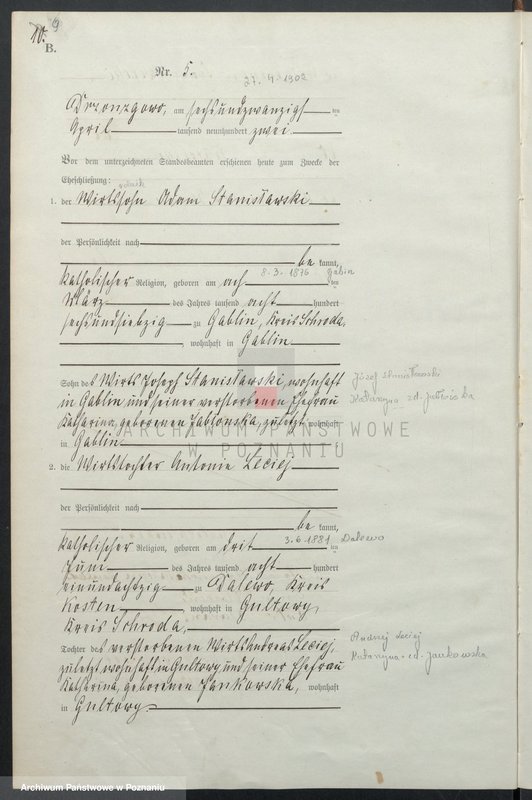 10. 9
B.
Nr. 5.
27. 4. 1902
Dronzgowo, am sechsundzwanzigsten
April tausend neunhundert zwei
Vor dem unterzeichneten Standesbeamten erschienen heute zum Zwecke der
Eheschließung:
1. der Wirtssohn Adam Stanisławski
der Persönlichkeit nach
be kannt,
8. 3. 1876 Gablin
katholischer Religion, geboren am achten
März des Jahres tausend acht hundert
sechsundsiebzig zu Gablin, Kreis Schroda,
, wohnhaft in Gablin
Sohn des Wirts Joseph Stanisławski, wohnhaft
in Gablin und seiner verstorbenen Ehefrau
Katharina, geborenen Jabłonska, zuletzt wohnhaft
in Gablin
Józef Stanisławski
Katarzyna zd.
ARCHIWUM PAŃSTWOWE
W POZNANIU
2. die Wirtstochter Antonie Leciej
der Persönlichkeit nach
be kannt,
3. 6. 1881 Dalewo
katholischer Religion, geboren am dritten
Juni des Jahres tausend acht hundert
einundachtzig zu Dalewo, Kreis
Kosten, wohnhaft in Gultowy,
Kreis Schroda,
Tochter des verstorbenen Wirts Andreas Leciej,
zuletzt wohnhaft in Gultowy und seiner Ehefrau
Katharina, geborenen Jankowska, wohnhaft
in Gultowy.
Andrzej Leciej
Katarzyna zd. Jankowska
Archiwum Państwowe w Poznaniu